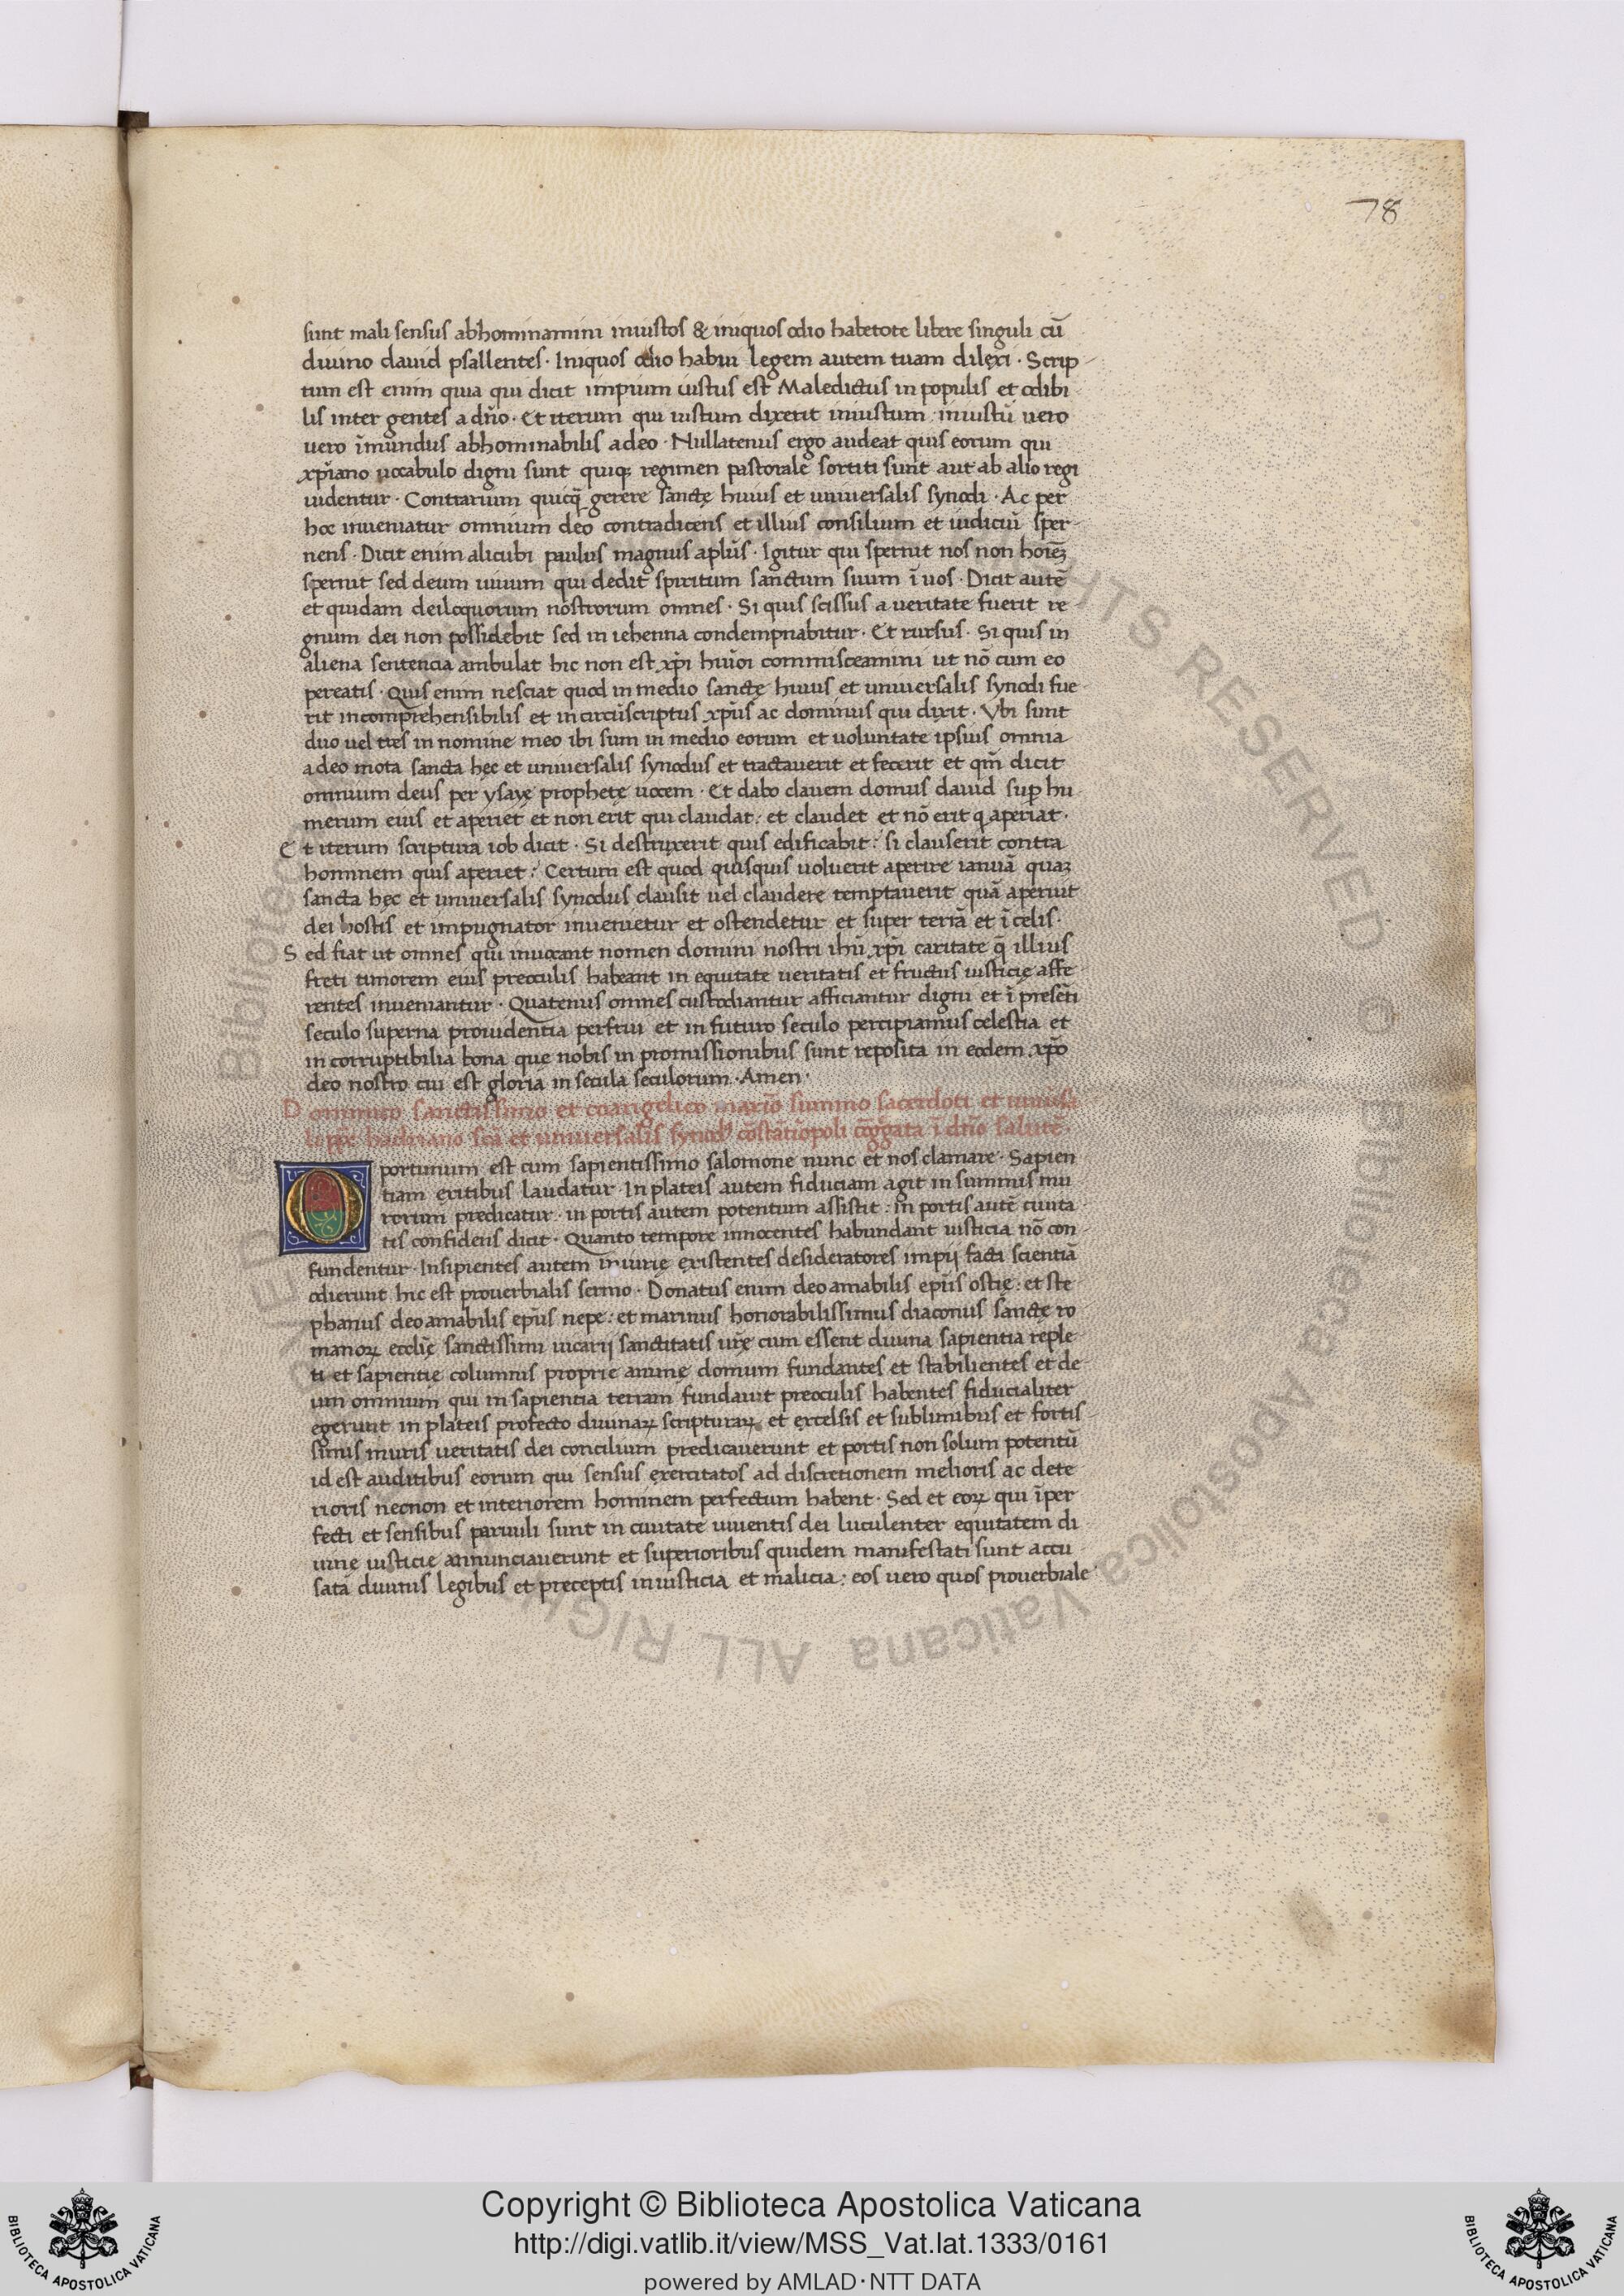 78
sunt mali sensus abhominamini iniustos & iniquos odio habetote libere singuli cū
diuino dauid psallentes · Iniquos odio habui legem autem tuam dilexi · Scrip-
tum est enim quia qui dicit impium iustus est Maledictus in populis et odibi
lis inter gentes a dn̄o · Et iterum qui iustum dixerit iniustum iniustū uero
uero īmundus abhominabilis a deo · Nullatenus ergo audeat quis eorum qui
xp̄iano uocabulo digni sunt quiqꝫ regimen pastorale sortiti sunt aut ab alio regi
uidentur · Contrarium quicq̄ gerere sanctę huius et uniuersalis synodi · Ac per
hoc inueniatur omnium deo contradicens et illius consilium et iudiciū sper-
nens · Dicit enim alicubi paulus magnus apl̄us · Igitur qui spernit nos non hoīeꝫ
spernit sed deum uiuum qui dedit spiritum sanctum suum ī uos · Dicit autē
et quidam deiloquorum nostrorum omnes · Si quis scissus a ueritate fuerit re
gnum dei non possidebit sed in iehenna condempnabitur · Et rursus · Si quis in
aliena sentencia ambulat hic non est xp̄i huīoi commisceamini ut nō cum eo
pereatis · Quis enim nesciat quod in medio sanctę huius et uniuersalis synodi fue
rit incomprehensibilis et incircūscriptus xp̄us ac dominus qui dixit · Vbi sunt
duo uel tres in nomine meo ibi sum in medio eorum et uoluntate ipsius omnia
a deo mota sancta hęc et uniuersalis synodus et tractauerit et fecerit et qm̄ dicit
omnium deus per ysaye prophetę uocem · Et dabo clauem domus dauid sup hu
merum eius et aperiet et non erit qui claudat : et claudet et nō erit q aperiat ·
Et iterum scriptura iob dicit · Si destruxerit quis edificabit : si clauserit contra
hominem quis aperiet : Certum est quod quisquis uoluerit aperire ianuā quaꝫ
sancta hęc et uniuersalis synodus clausit uel claudere temptauerit quā aperuit
dei hostis et impugnator inuenietur et ostendetur et super terrā et ī celis ·
Sed fiat ut omnes qui inuocant nomen domini nostri ihū xp̄i caritate q̄ illius
freti timorem eius preoculis habeant in equitate ueritatis et fructus iusticię affe
rentes inueniantur · Quatenus omnes custodiantur afficiantur digni et ī presēti
seculo superna prouidentia perfrui et in futuro seculo percipiamus celestia et
in corruptibilia bona que nobis in promissionibus sunt reposita in eodem xp̄o
deo nostro cui est gloria in secula seculorum · Amen ·
Domino sanctissimo et coangelico maxīo summo sacerdoti et uniu̅sa
li hadriano scā et uniuersalis synod cōstātīopoli cōggata ī dn̄o salutē ·
Oportunum est cum sapientissimo salomone nunc et nos clamare · Sapien
tiam exitibus laudatur · In plateis autem fiduciam agit in summis mu
rorum predicatur · in portis autem potentum assistit : in portis autē ciuita
tis confidens dicit · Quanto tempore innocentes habundant iusticia nō con
fundentur · Insipientes autem iniurię existentes desideratores impij facti scientiā
odierunt hic est prouerbialis sermo · Donatus enim deo amabilis epūs ostię : et ste
phanus deo amabilis epūs nepe : et marinus honorabilissimus diaconus sanctę ro
manoꝝ eccl̄ię sanctissimi uicarij sanctitatis ur̄ę cum essent diuina sapientia reple
ti et sapientię columnis proprie animę domum fundantes et stabilientes et de
um omnium qui in sapientia terram fundauit preoculis habentes fiducialiter
egerunt in plateis profecto diuinaꝝ scripturaꝝ et excelsis et sublimibus et fortis-
simis muris ueritatis dei concilium predicauerunt et portis non solum potentū
id est auditibus eorum qui sensus exercitatos ad discretionem melioris ac dete
rioris necnon et interiorem hominem perfectum habent · Sed et eoꝝ qui īper
fecti et sensibus paruuli sunt in ciuitate uiuentis dei luculenter equitatem di
uine iusticie annunciauerunt et superioribus quidem manifestati sunt accu
sata diuinis legibus et preceptis iniusticia et malicia : eos uero quos prouerbiale
Copyright © Biblioteca Apostolica Vaticana
http://digi.vatlib.it/view/MSS_Vat.lat.1333/0161
powered by AMLAD · NTT DATA
BIBLIOTECA APOSTOLICA VATICANA
BIBLIOTECA APOSTOLICA VATICANA